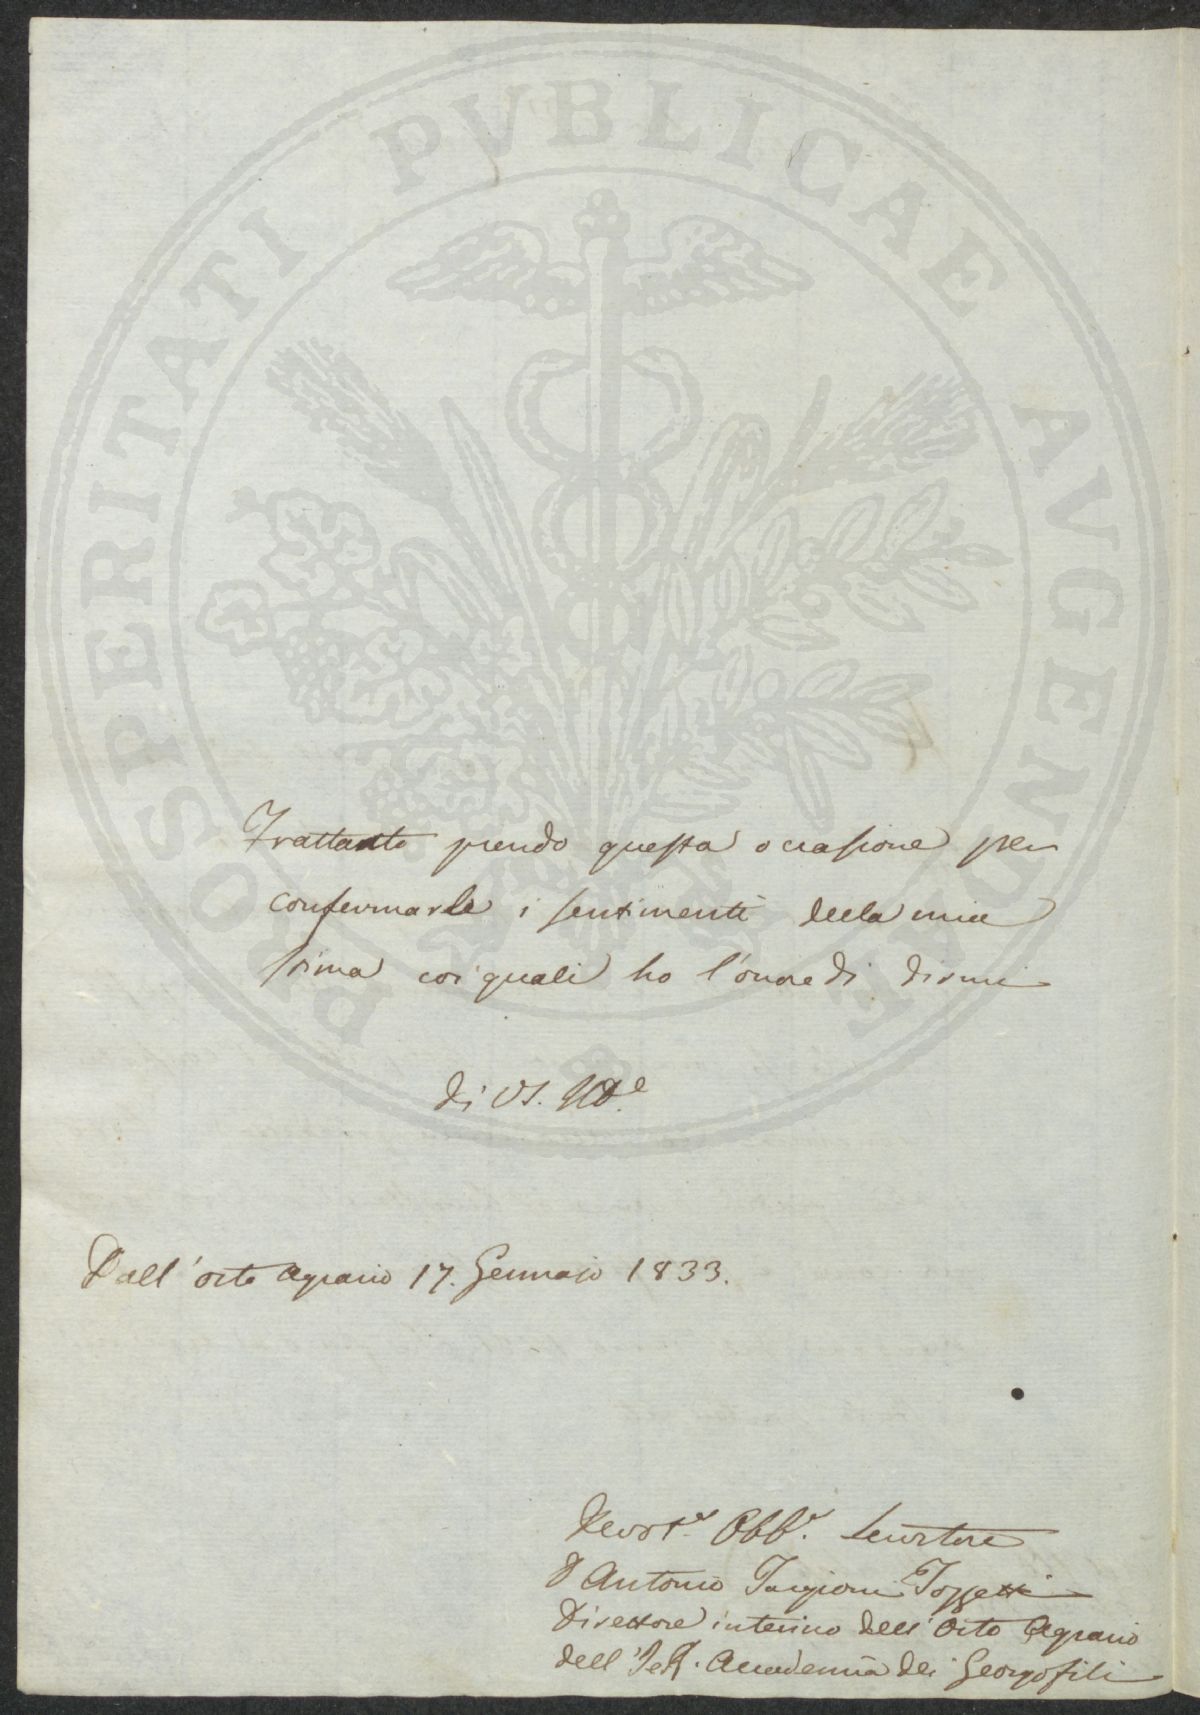 PROSPERITATI PVBLICAE AVGENDAE
Frattanto prendo questa occasione per
confermarle i sentimenti della mia
stima coi quali ho l'onore di dirmi
di VS.
Dall'orto agrario 17. Gennajo 1833.
Devot.º Obb.º Servitore
D Antonio Targioni Tozzetti
Direttore interino dell'Orto Agrario
dell'I e R. Accademia dei Georgofili